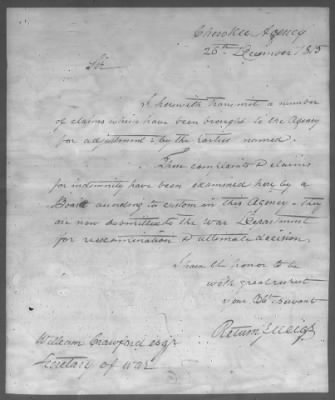 Cherokee Agency
26th December 1815
Sir
I herewith transmit a number
of claims which have been brought to the Agency
for adjustment & by the parties named.
These complaints & claims
for indemnity have been examined here by a
Board according to custom in this Agency. They
are now submitted to the War Department
for reexamination & ultimate decision
I have the honor to be
with great respect
your Obt Servant
Return J Meigs
William Crawford esqr
Secretary of War